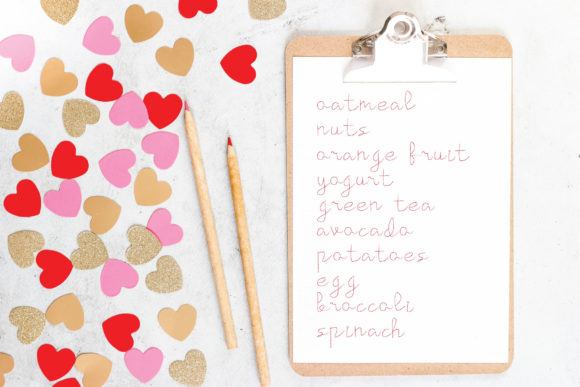 oatmeal
nuts
orange fruit
yogurt
green tea
avocado
potatoes
egg
broccoli
spinach